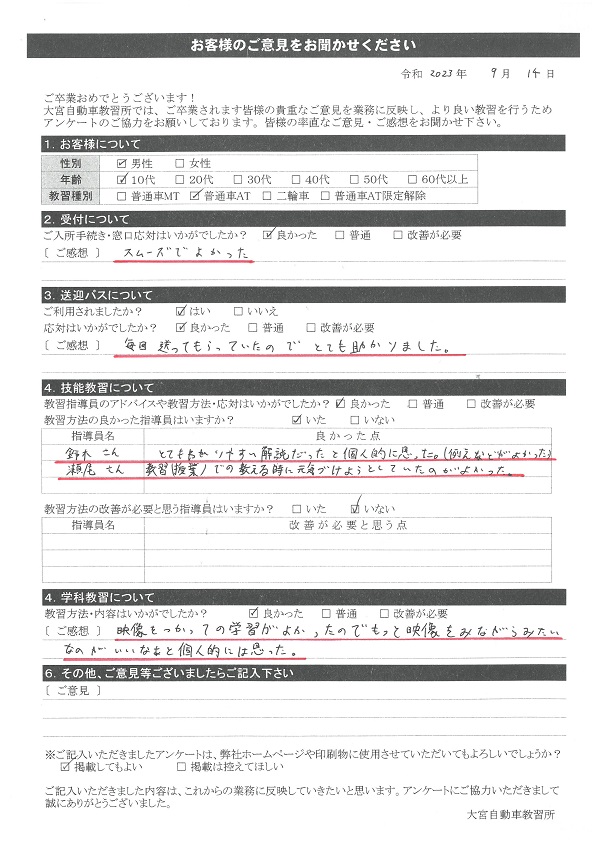 お客様のご意見をお聞かせください
令和 2023 年 9 月 14 日
ご卒業おめでとうございます!
大宮自動車教習所では、ご卒業されます皆様の貴重なご意見を業務に反映し、より良い教習を行うため
アンケートのご協力をお願いしております。皆様の率直なご意見・ご感想をお聞かせ下さい。
1. お客様について
性別 ☑ 男性 □ 女性
年齢 ☑ 10代 □ 20代 □ 30代 □ 40代 □ 50代 □ 60代以上
教習種別 □ 普通車MT ☑ 普通車AT □ 二輪車 □ 普通車AT限定解除
2. 受付について
ご入所手続き・窓口応対はいかがでしたか? ☑ 良かった □ 普通 □ 改善が必要
[ ご感想 ] スムーズでよかった
3. 送迎バスについて
ご利用されましたか? ☑ はい □ いいえ
応対はいかがでしたか? ☑ 良かった □ 普通 □ 改善が必要
[ ご感想 ] 毎回 送ってもらっていたので とても助かりました。
4. 技能教習について
教習指導員のアドバイスや教習方法・応対はいかがでしたか? ☑ 良かった □ 普通 □ 改善が必要
教習方法の良かった指導員はいますか? ☑ いた □ いない
指導員名 良かった点
鈴木 さん とてもわかりやすい解説だったと個人的に思った。(例えなどがよかった)
瀬尾 さん 教習(授業)での教える時に元気づけようとしていたのがよかった。
教習方法の改善が必要と思う指導員はいますか? □ いた ☑ いない
指導員名 改善が必要と思う点
4. 学科教習について
教習方法・内容はいかがでしたか? ☑ 良かった □ 普通 □ 改善が必要
[ ご感想 ] 映像をつかっての学習がよかったのでもっと映像をみながらみたい
なのがいいなぁと個人的には思った。
6. その他、ご意見等ございましたらご記入下さい
[ ご意見 ]
※ご記入いただきましたアンケートは、弊社ホームページや印刷物に使用させていただいてもよろしいでしょうか?
☑ 掲載してもよい □ 掲載は控えてほしい
ご記入いただきました内容は、これからの業務に反映していきたいと思います。アンケートにご協力いただきまして
誠にありがとうございました。
大宮自動車教習所